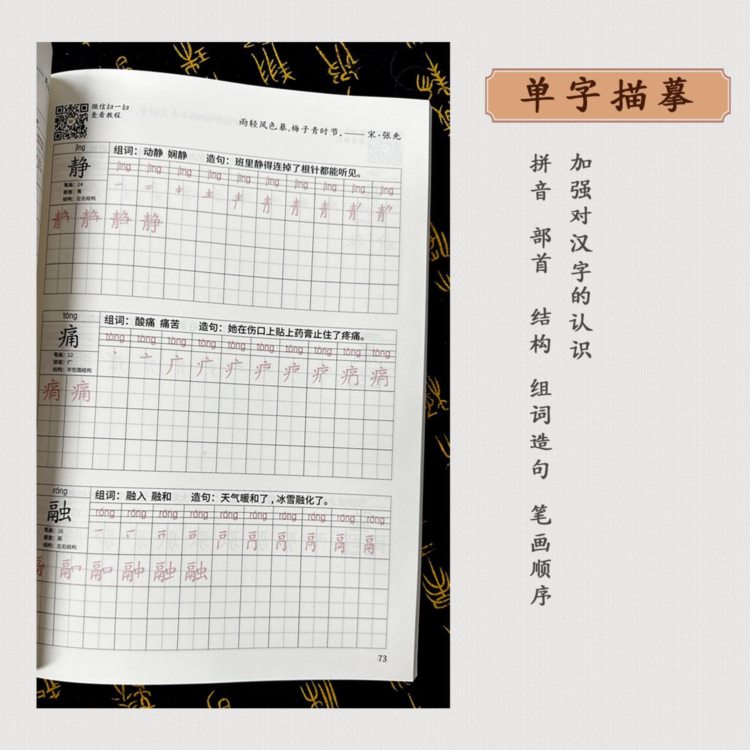 单字描摹
加强对汉字的认识
拼音 部首 结构 组词造句 笔画顺序
微信扫一扫
查看教程
雨轻风色暴,梅子青时节。—— 宋·张先
jìng
静
笔画：14
部首：青
结构：左右结构
组词：动静 娴静 造句：班里静得连掉了根针都能听见。
jìng jìng jìng jìng jìng jìng jìng jìng jìng jìng
静
tòng
痛
笔画：12
部首：疒
结构：半包围结构
组词：酸痛 痛苦 造句：她在伤口上贴上药膏止住了疼痛。
tòng tòng tòng tòng tòng tòng tòng tòng tòng tòng
痛
róng
融
笔画：16
部首：鬲
结构：左右结构
组词：融入 融和 造句：天气暖和了,冰雪融化了。
róng róng róng róng róng róng róng róng róng róng
融
73